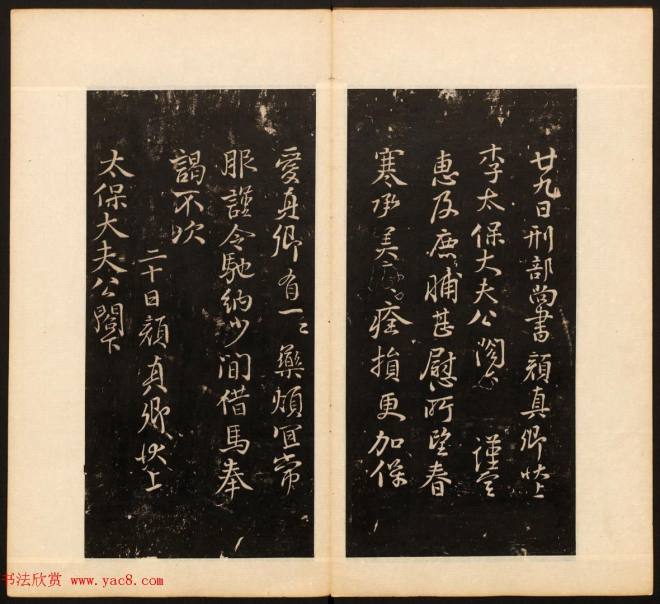 廿九日刑部尚書顔真卿狀上
李太保大夫公閤下 謹空
惠及鹿脯甚慰所望春
寒承美疹痊損更加保
愛真卿有一二藥煩宜常
服謹令馳納少間借馬奉
謁不次
二十日顔真卿狀上
太保大夫公閤下
书法欣赏 www.yac8.com